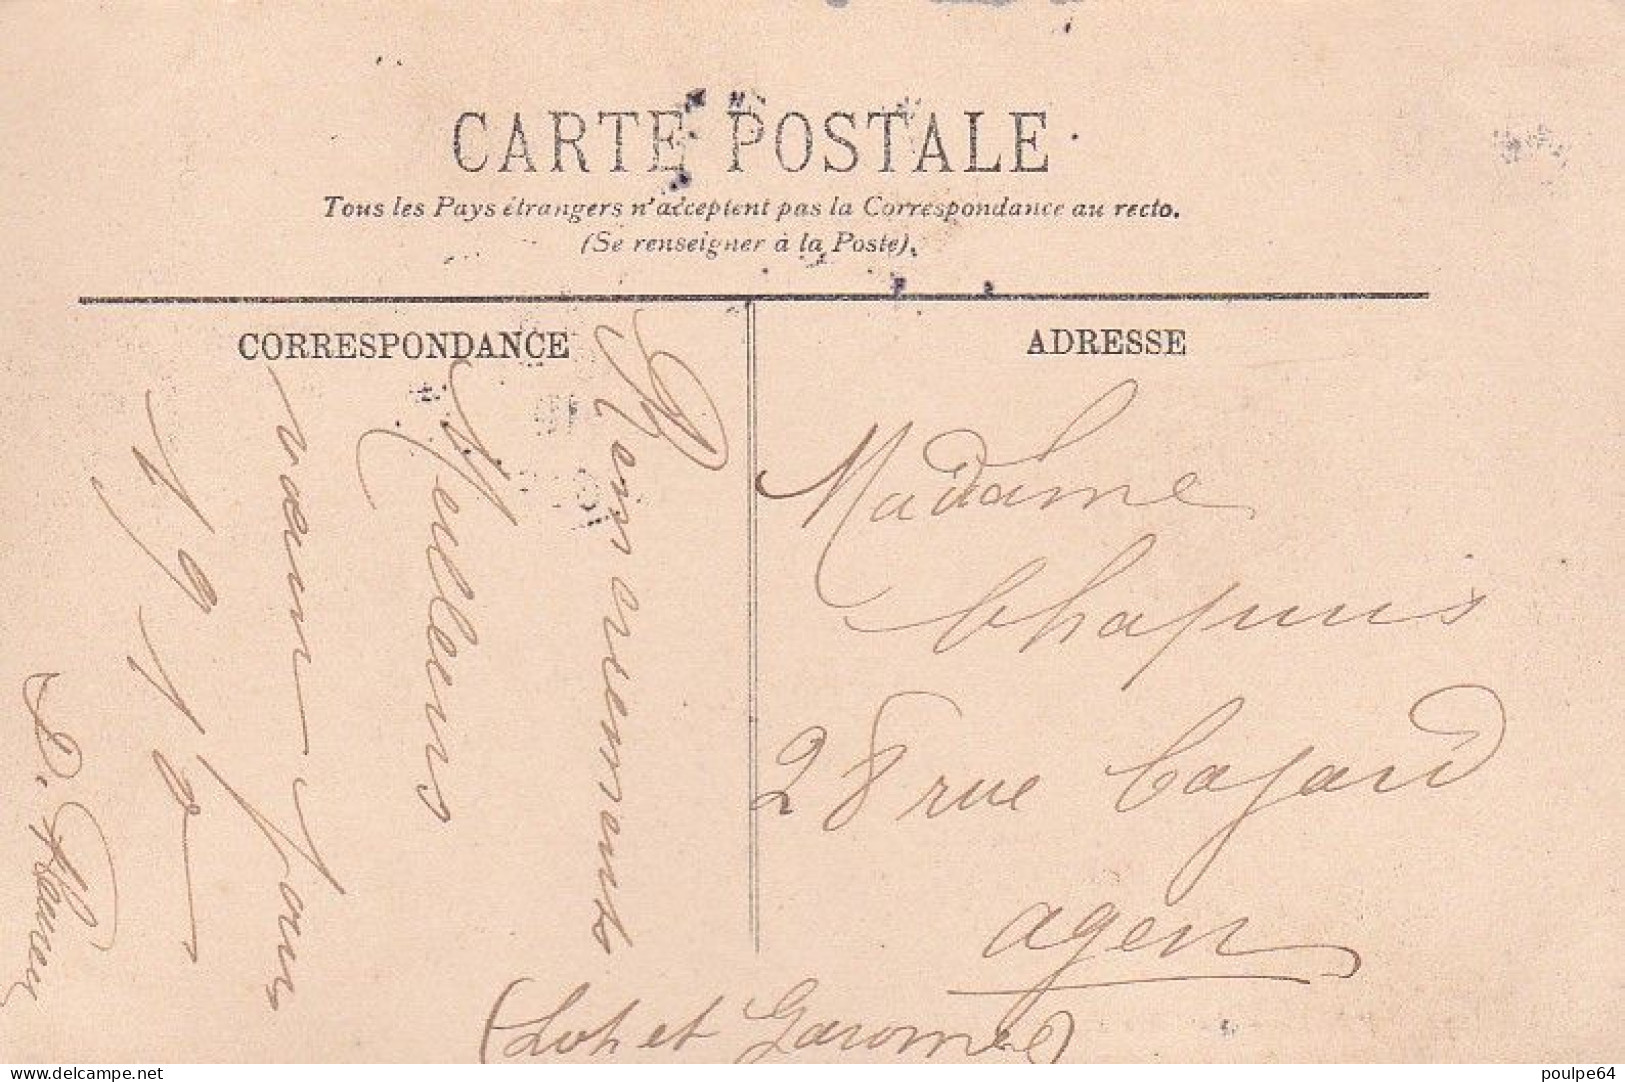 CARTE POSTALE
Tous les Pays étrangers n'acceptent pas la Correspondance au recto.
(Se renseigner à la Poste).
CORRESPONDANCE
Remerciements
Meilleurs
vœux pour
1912
ADRESSE
Madame
Chapuis
28 rue Cajard
agen
(Lot et Garonne)
delcampe.net
poulpe64